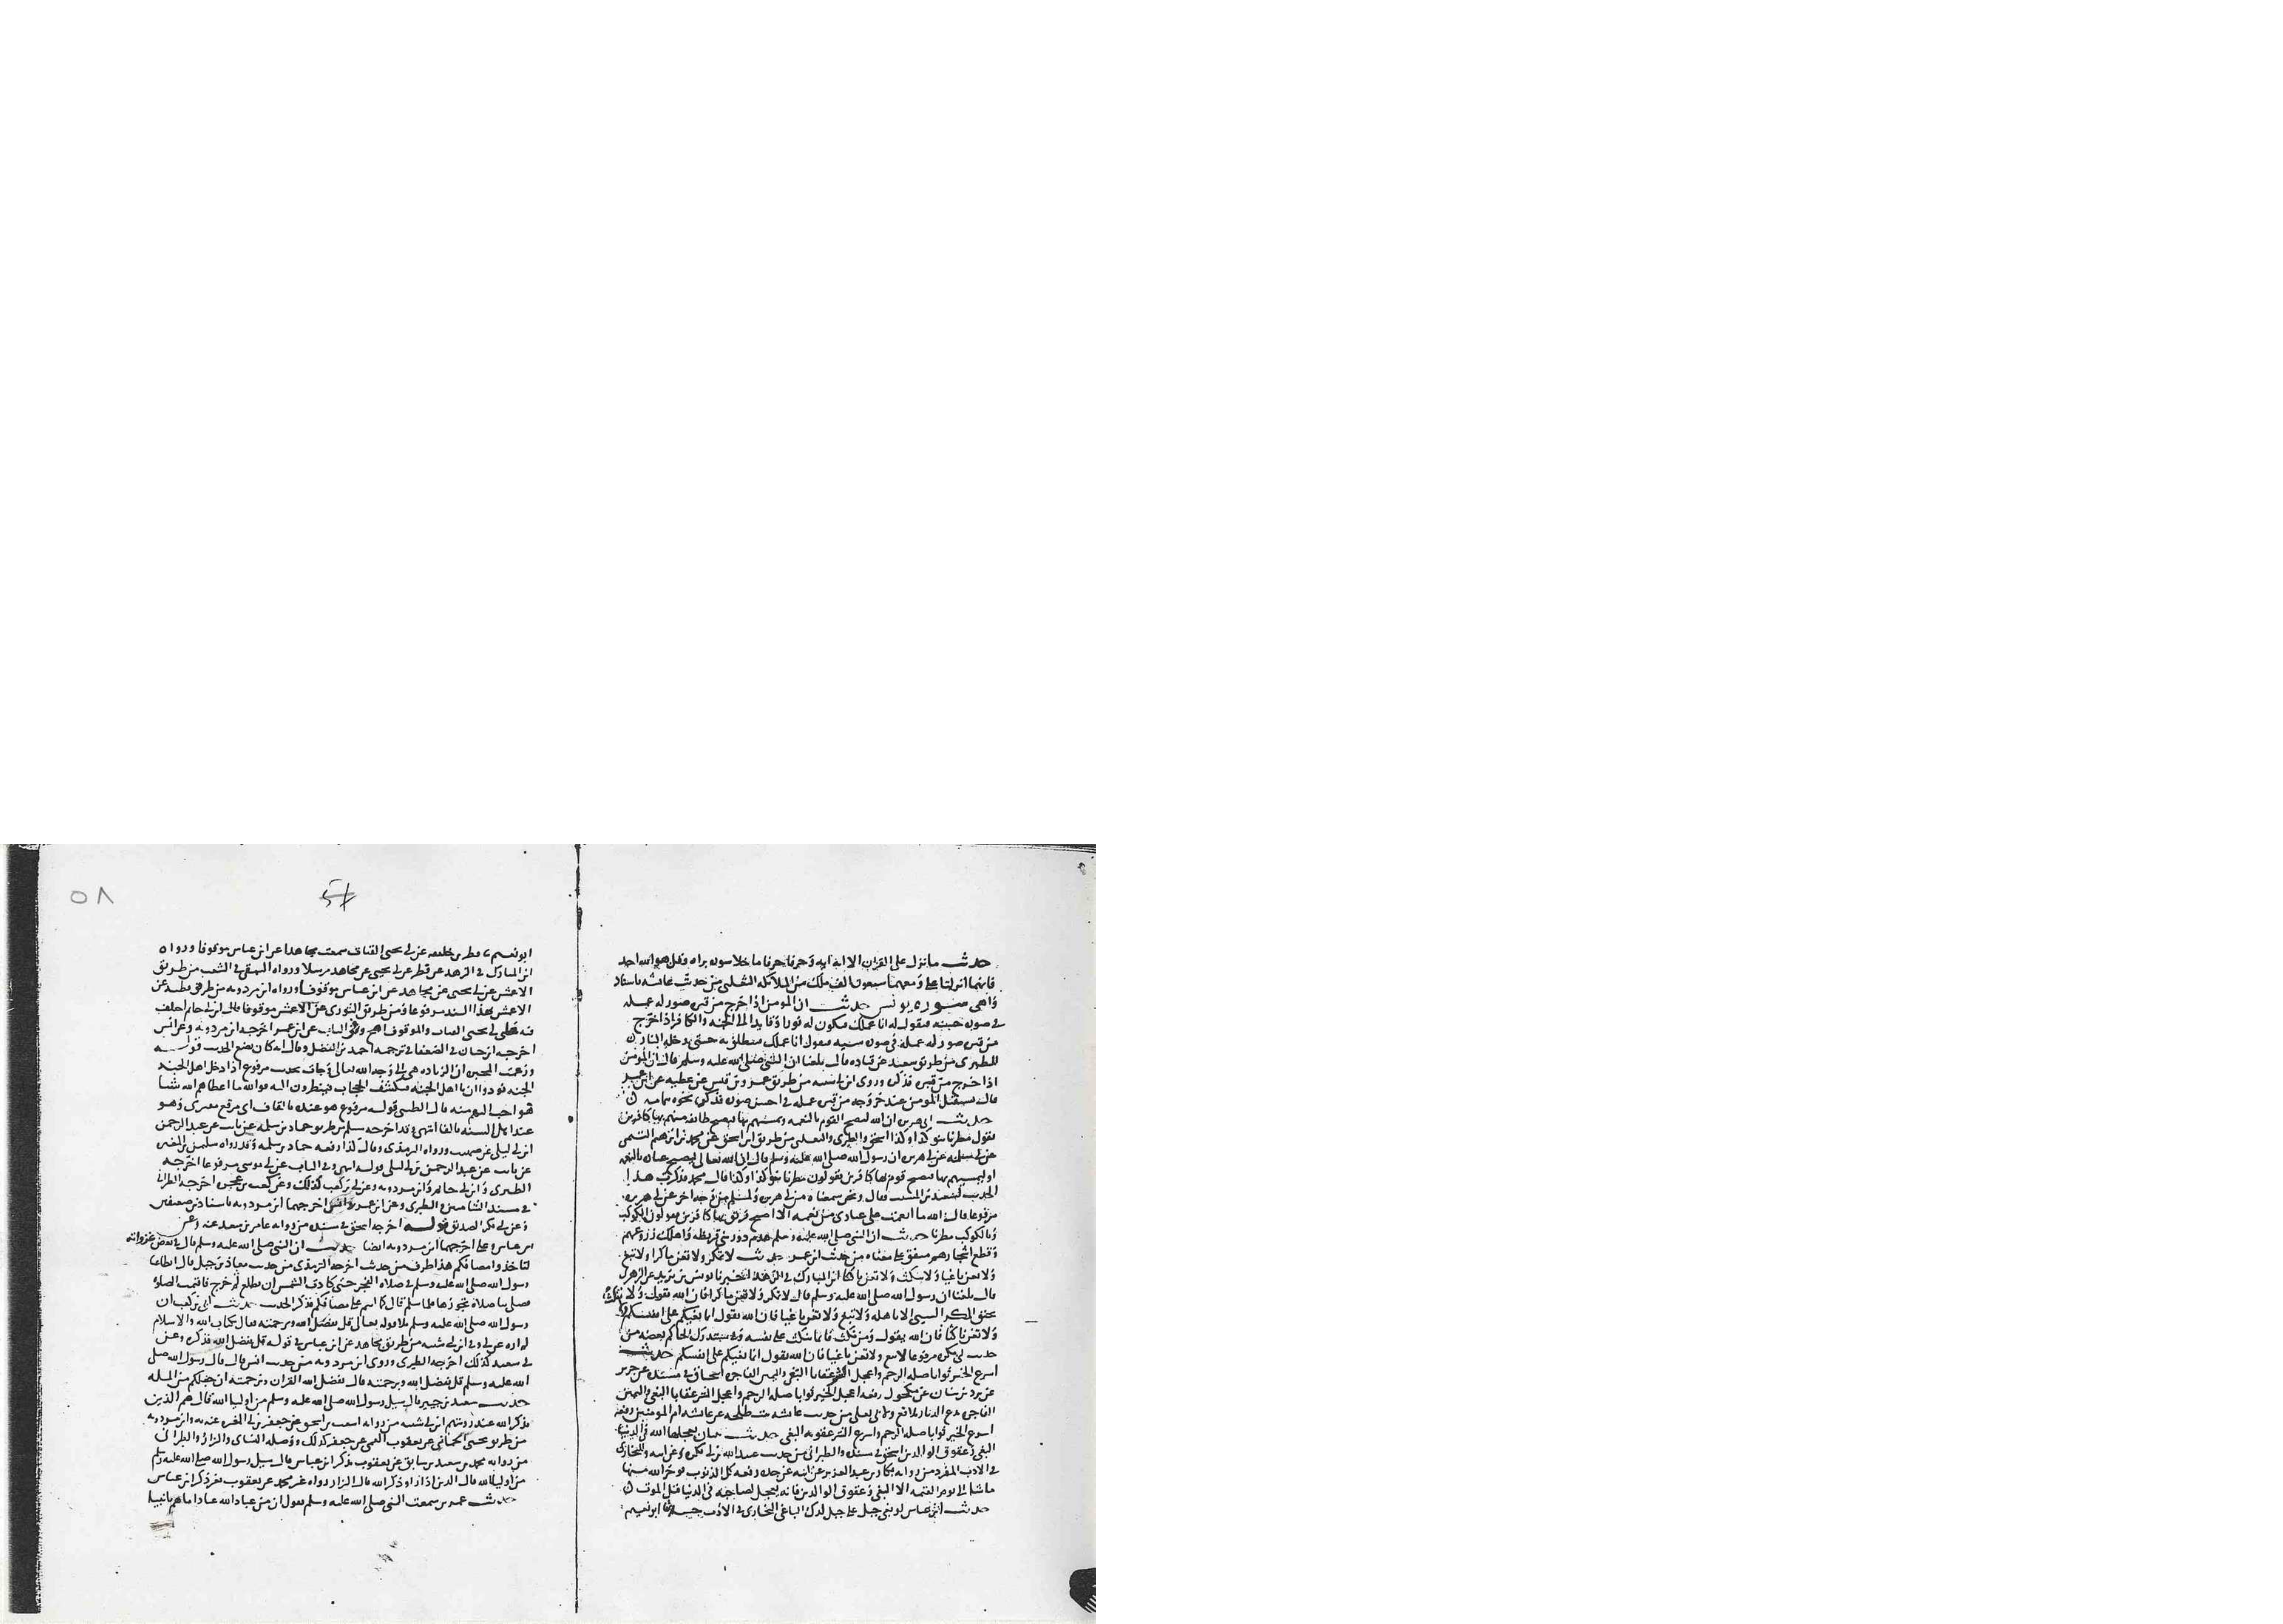 حديث ما نزل على القران الا اية اية وحرفا حرفا ما خلا سورة براه وقل هو الله احد
فانهما انزلتا على ومعهما سبعون الف ملك من الملائكة الثعلبي من حديث عائشة باسناد
واهى سورة يونس حديث ان المومن اذا خرج من قبره صور له عمله
في صورة حسنة فيقول له انا عملك فيكون له نورا وقايدا الى الجنة والكافر اذا خرج
من قبره صور له عمله في صورة سيية فيقول انا عملك فينطلق به حتى يدخله النار
للطبري من طريق سعيد عن قتادة قال بلغنا ان النبي صلى الله عليه وسلم قال ان المومن
اذا خرج من قبره فذكره وروى ابن ابي شيبة من طريق عمرو بن قيس عن عطية عن ابن عمر
قال يستقبل المومن عند خروجه من قبره عمله في احسن صورة فذكر نحوه بتمامه
حديث ابي هريرة ان الله ليصبح القوم بالنعمة ويمسيهم بها فيصبح طائفة منهم بها كافرين
يقول مطرنا بنو كذا وكذا اسحق والطبري والثعلبي من طريق ابن اسحق عن محمد بن ابراهيم التيمي
عن ابي سلمة عن ابي هريرة ان رسول الله صلى الله عليه وسلم قال ان الله تعالى ليصبح عباده بالنعمة
او ليمسيهم بها فيصبح قوم بها كافرين يقولون مطرنا بنو كذا وكذا قال محمد فذكرت هذا
الحديث لسعيد بن المسيب فقال ونحن سمعناه من ابي هريرة ولمسلم من وجه اخر عن ابي هريرة
مرفوعا قال الله ما انعمت على عبادي من نعمة الا اصبح فريق بها كافرين يقولون الكوكب
وبالكوكب مطرنا حديث ان النبي صلى الله عليه وسلم هدم دور بني قريظة واهلك زروعهم
وقطع اشجارهم متفق على معناه من حديث ابن عمر حديث لا تمكر ولا تعن ماكرا ولا تبغ
ولا تعن باغيا ولا تنكث ولا تعن ناكثا ابن المبارك في الزهد اخبرنا يونس بن يزيد عن الزهري
قال بلغنا ان رسول الله صلى الله عليه وسلم قال لا تمكر ولا تعن ماكرا فان الله يقول ولا
يحيق المكر السيى الا باهله ولا تبغ ولا تعن باغيا فان الله يقول انما بغيكم على انفسكم
ولا تعن ناكثا فان الله يقول ومن نكث فانما ينكث على نفسه وفي مستدرك الحاكم بعضه من
حديث ابي بكرة مرفوعا لا تبغ ولا تعن باغيا فان الله يقول انما بغيكم على انفسكم حديث
اسرع الخير ثوابا صلة الرحم واعجل الشر عقابا البغي واليمين الفاجرة اسحاق في مسنده عن جرير
عن برد بن سنان عن مكحول رفعه اعجل الخير ثوابا صلة الرحم واعجل الشر عقابا البغي واليمين
الفاجرة تدع الديار بلاقع ولابي يعلى من حديث عائشة بنت طلحة عن عائشة ام المومنين رفعته
اسرع الخير ثوابا صلة الرحم واسرع الشر عقوبة البغي حديث ثنتان يعجلهما الله في الدنيا
البغي وعقوق الوالدين اسحق في مسنده والطبراني من حديث عبيد الله بن ابي بكرة عن ابيه وللبخاري
في الادب المفرد من رواية بكار بن عبد العزيز عن ابيه عن جده رفعه كل الذنوب يوخر الله منها
ما شا الى يوم القيمة الا البغي وعقوق الوالدين فانه يعجل لصاحبه في الدنيا قبل الموت
حديث ابن عباس لو بغى جبل على جبل لدك الباغي البخاري في الادب ابو نعيم
٥٨
57
ابو نعيم فطر بن خليفة عن ابي يحيى القتات سمعت مجاهدا عن ابن عباس موقوفا ورواه
ابن المبارك في الزهد عن فطر عن ابي يحيى عن مجاهد مرسلا ورواه البيهقي في الشعب من طريق
الاعمش عن ابي يحيى عن مجاهد عن ابن عباس موقوفا ورواه ابن مردويه من طريق قطبة عن
الاعمش بهذا السند مرفوعا ومن طريق الثوري عن الاعمش موقوفا قال ابن ابي حاتم اختلف
فيه على ابي يحيى القتات والموقوف اصح وفي الباب عن ابن عمر اخرجه ابن مردويه وعن انس
اخرجه ابن حبان في الضعفا في ترجمة احمد بن الفضل وقال انه كان يضع الحديث قوله
وزعمت المجبرة ان الزيادة هي الى وجه الله تعالى وجات بحديث مرفوع اذا دخل اهل الجنة
الجنة نودوا ان يا اهل الجنة فيكشف الحجاب فينظرون اليه فوالله ما اعطاهم الله شيا
هو احب اليهم منه قال الطيبي قوله مرفوع هو عنده بالقاف اي مرقع مفترى وهو
عند اهل السنة بالفا انتهى وقد اخرجه مسلم من طريق حماد بن سلمة عن ثابت عن عبد الرحمن
ابن ابي ليلى عن صهيب ورواه الترمذي وقال كذا رفعه حماد بن سلمة وقد رواه سليمن بن المغيرة
عن ثابت عن عبد الرحمن بن ابي ليلى قوله انتهى وفي الباب عن ابي موسى مرفوعا اخرجه
الطبري وابن ابي حاتم وابن مردويه وعن ابي بن كعب كذلك وعن كعب بن عجرة اخرجه الطبراني
في مسند الشاميين والطبري وعن ابن عمر وانس اخرجهما ابن مردويه باسنادين ضعيفين
وعن ابي بكر الصديق قوله اخرجه اسحق في مسنده من رواية عامر بن سعد عنه وعن
ابن عباس وعلي اخرجهما ابن مردويه ايضا حديث ان النبي صلى الله عليه وسلم قال في بعض غزواته
لتاخذوا مصافكم هذا طرف من حديث اخرجه الترمذي من حديث معاذ بن جبل قال ابطا عنا
رسول الله صلى الله عليه وسلم في صلاة الفجر حتى كادت الشمس ان تطلع ثم خرج فاقيمت الصلوة
فصلى بنا صلاة تجوز فيها فلما سلم قال كما انتم على مصافكم فذكر الحديث حديث ابي بن كعب ان
رسول الله صلى الله عليه وسلم تلا قوله تعالى قل بفضل الله وبرحمته فقال بكتاب الله والاسلام
ابن ابي شيبة من طريق مجاهد عن ابن عباس في قوله قل بفضل الله فذكره وعن
ابي سعيد كذلك اخرجه الطبري وروى ابن مردويه من حديث انس قال قال رسول الله صلى
الله عليه وسلم قل بفضل الله وبرحمته قال بفضل الله القران وبرحمته ان جعلكم من اهله
حديث سعيد بن جبير قال سيل رسول الله صلى الله عليه وسلم من اوليا الله قال هم الذين
يذكر الله عند رويتهم ابن ابي شيبة من رواية اشعث بن اسحق عن جعفر بن ابي المغيرة عنه به وابن مردويه
من طريق يحيى الحماني عن يعقوب القمي عن جعفر كذلك ووصله النساي والبزار والطبراني
من رواية محمد بن سعيد بن سابق عن يعقوب بذكر ابن عباس قال سيل رسول الله صلى الله عليه وسلم
من اوليا الله قال الذين اذا راوا ذكر الله قال البزار رواه غير محمد عن يعقوب بغير ذكر ابن عباس
حديث عمر سمعت النبي صلى الله عليه وسلم يقول ان من عباد الله عبادا ما هم بانبيا